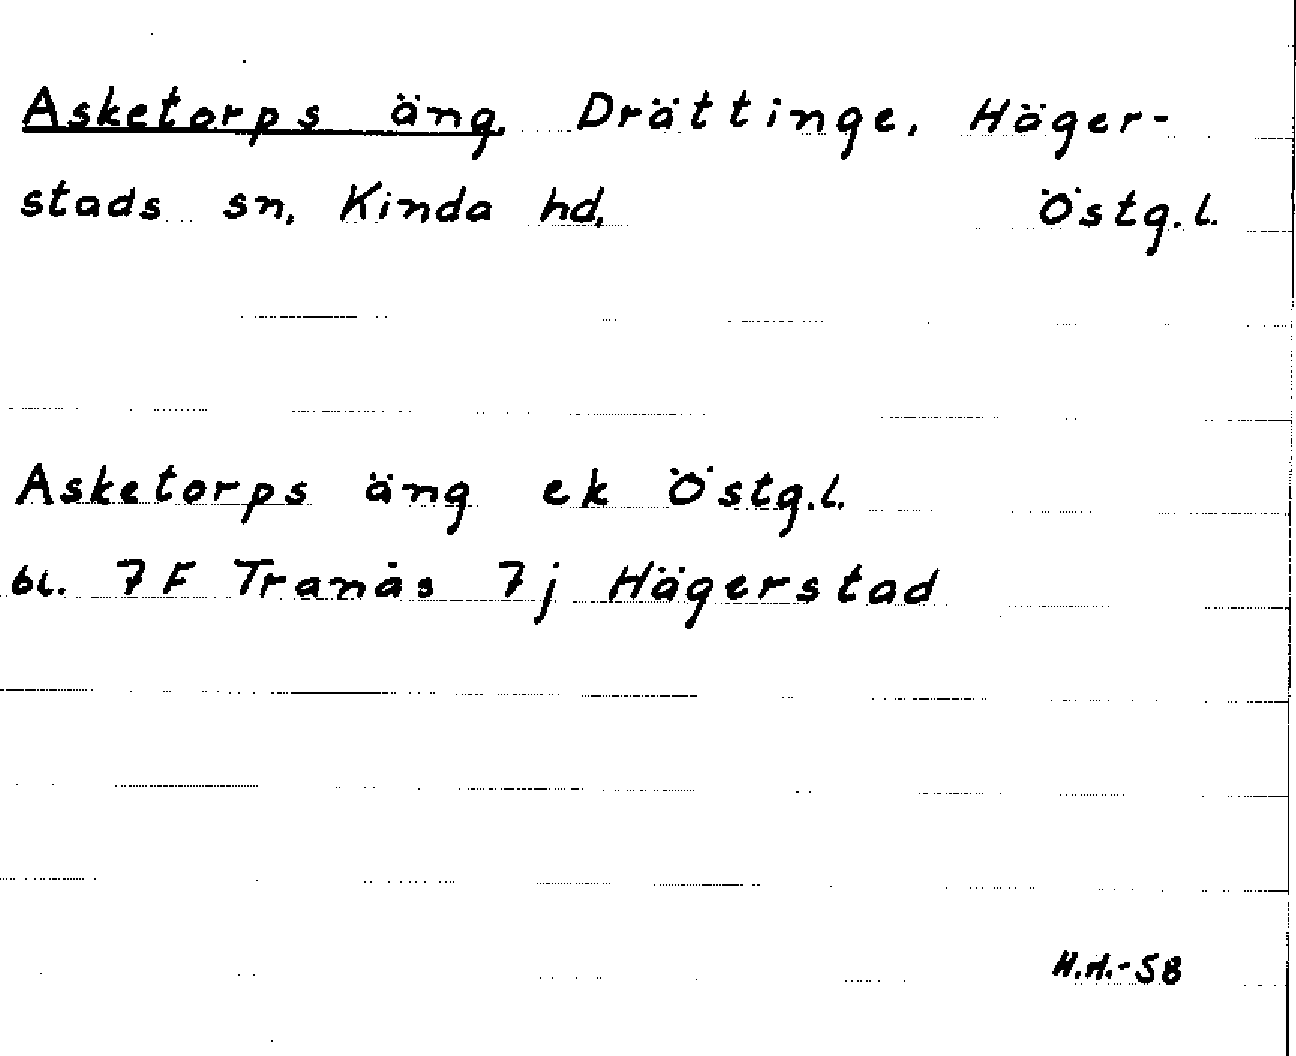 Asketorps äng, Drättinge, Häger-
stads sn, Kinda hd, Östg.l.
Asketorps äng ek Östg.l.
bl. 7F Tranås 7j Hägerstad
H.H.-58